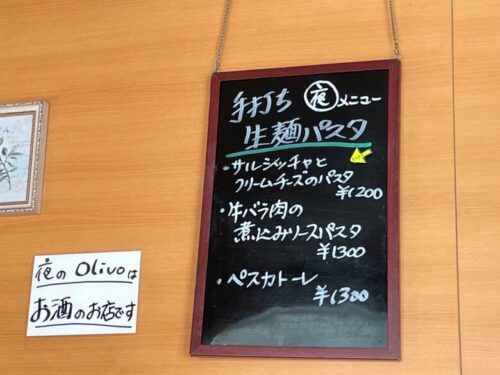 手打ち 夜 メニュー
生麺パスタ
・サルシッチャと
クリームチーズのパスタ
¥1200
・牛バラ肉の
煮込みソースパスタ
¥1300
・ペスカトーレ
¥1300
夜の Olivoは
お酒のお店です